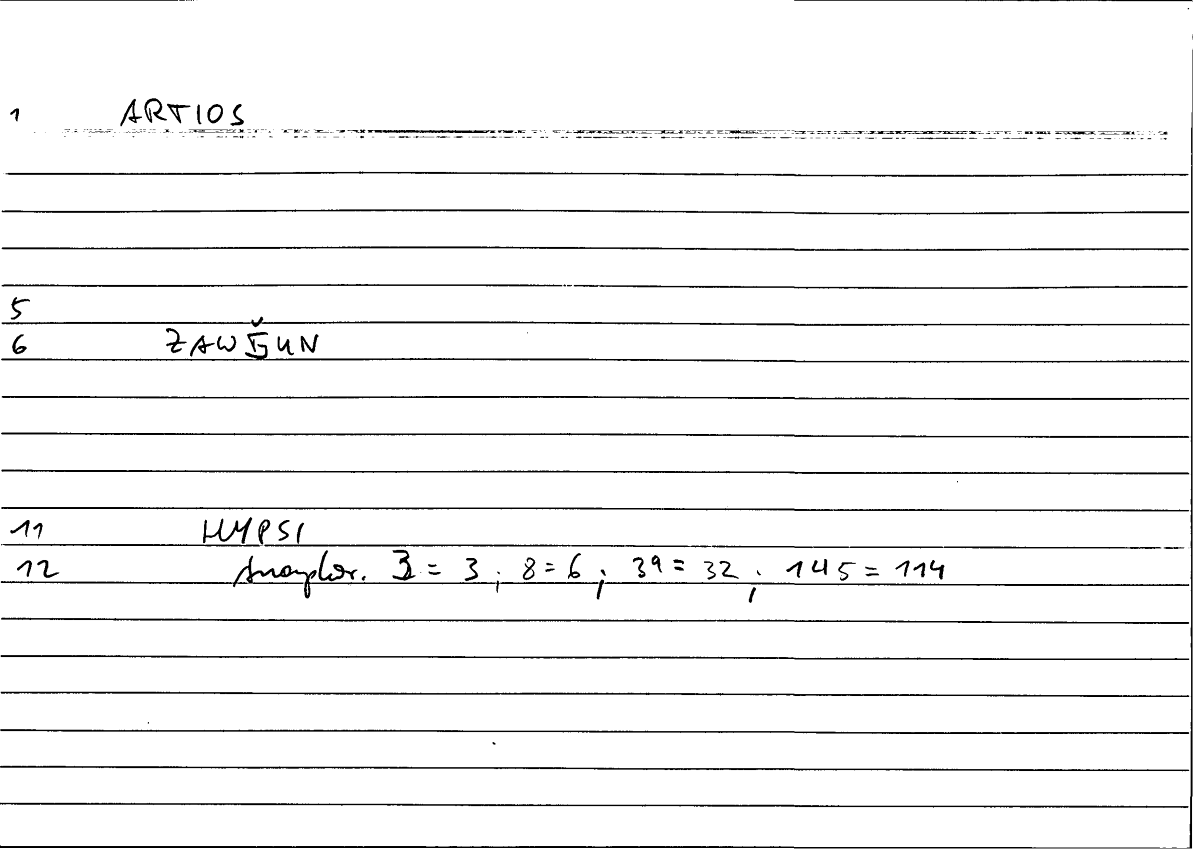 1 ARTIOS
5
6 ZAWǦUN
11 HYPSI
12 = 3 ; 8 = 6 ; 39 = 32 ; 145 = 114